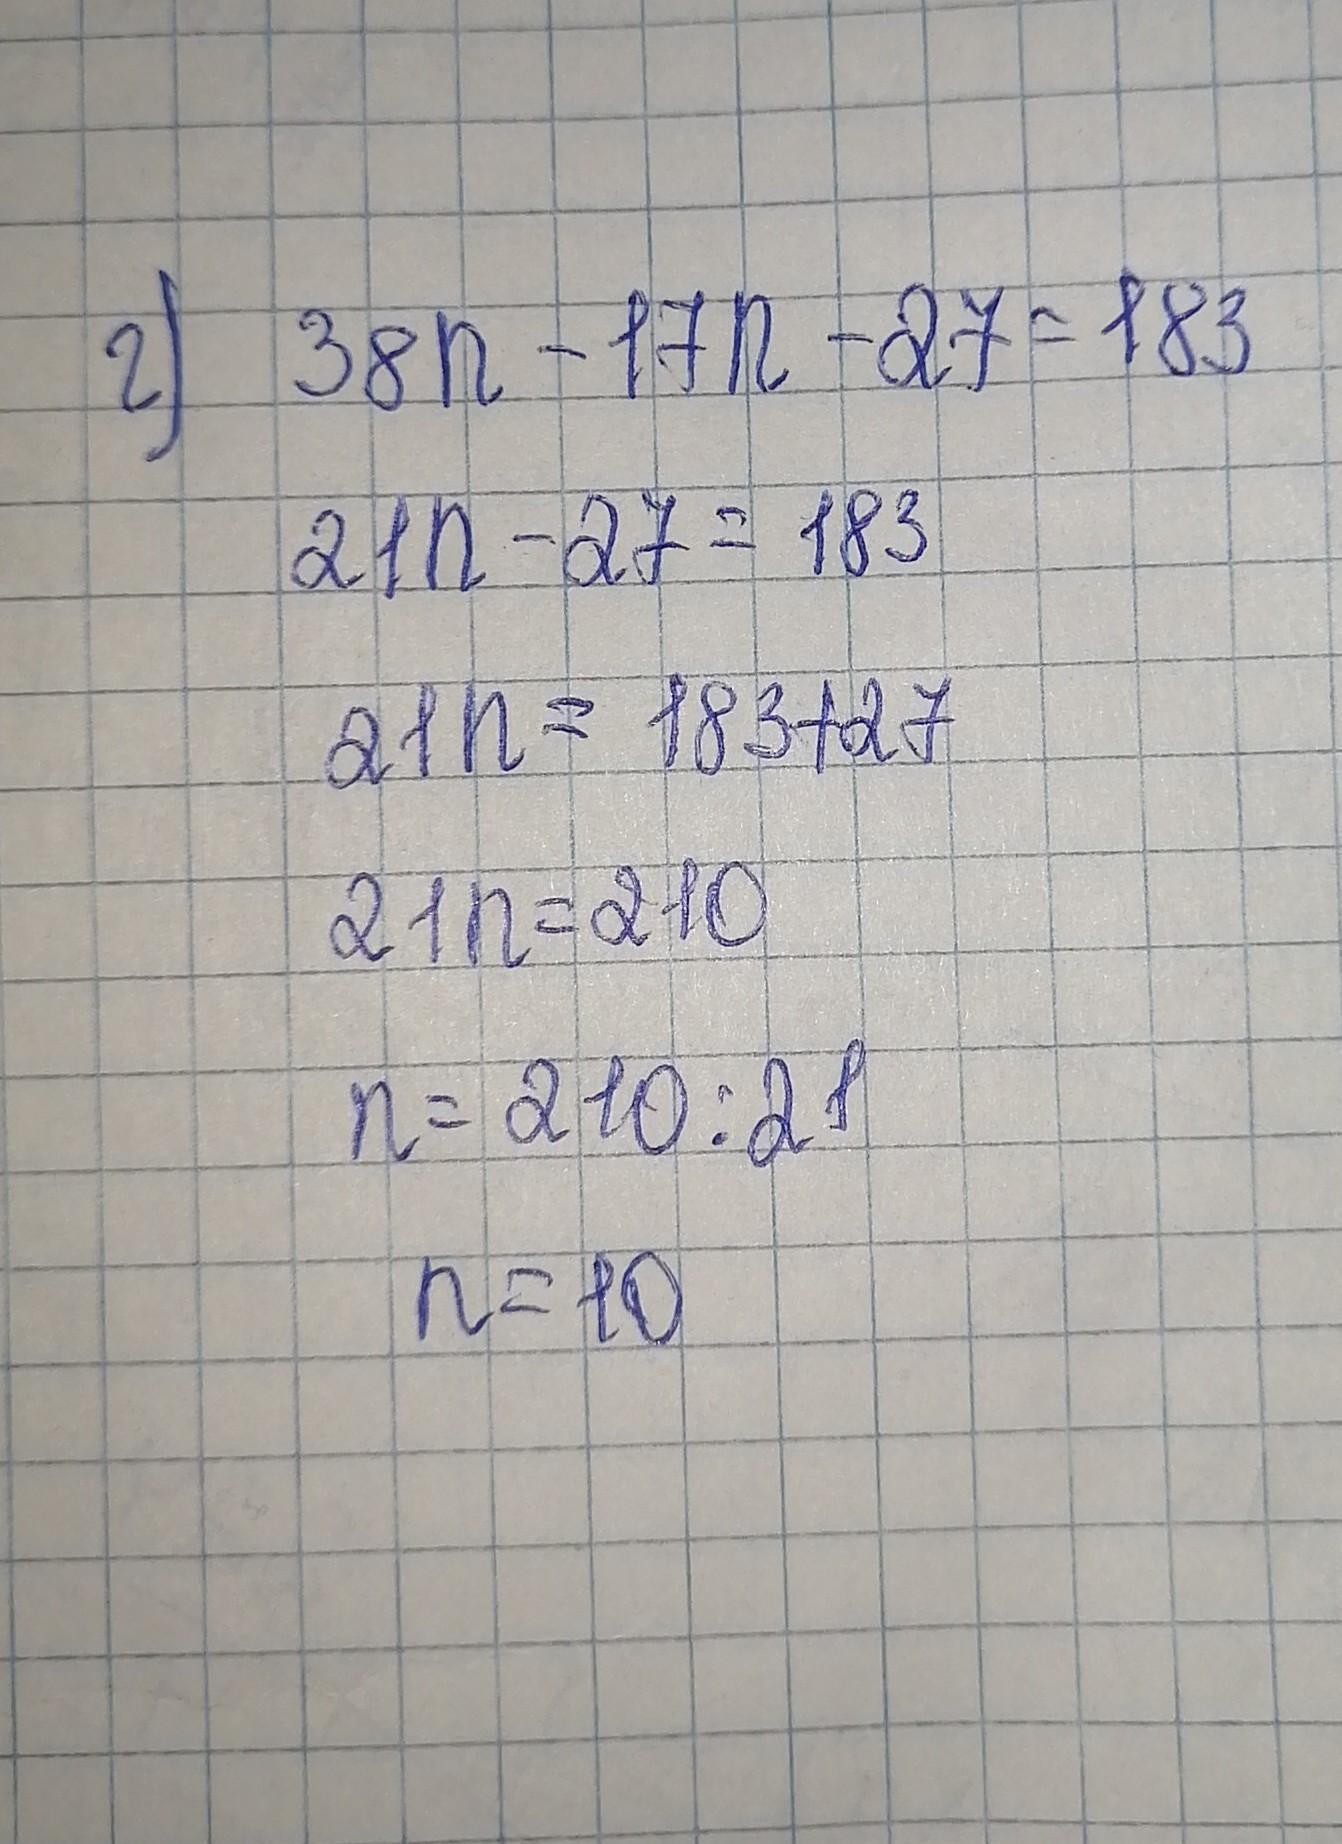 г) 38n - 17n - 27 = 183
21n - 27 = 183
21n = 183 + 27
21n = 210
n = 210 : 21
n = 10